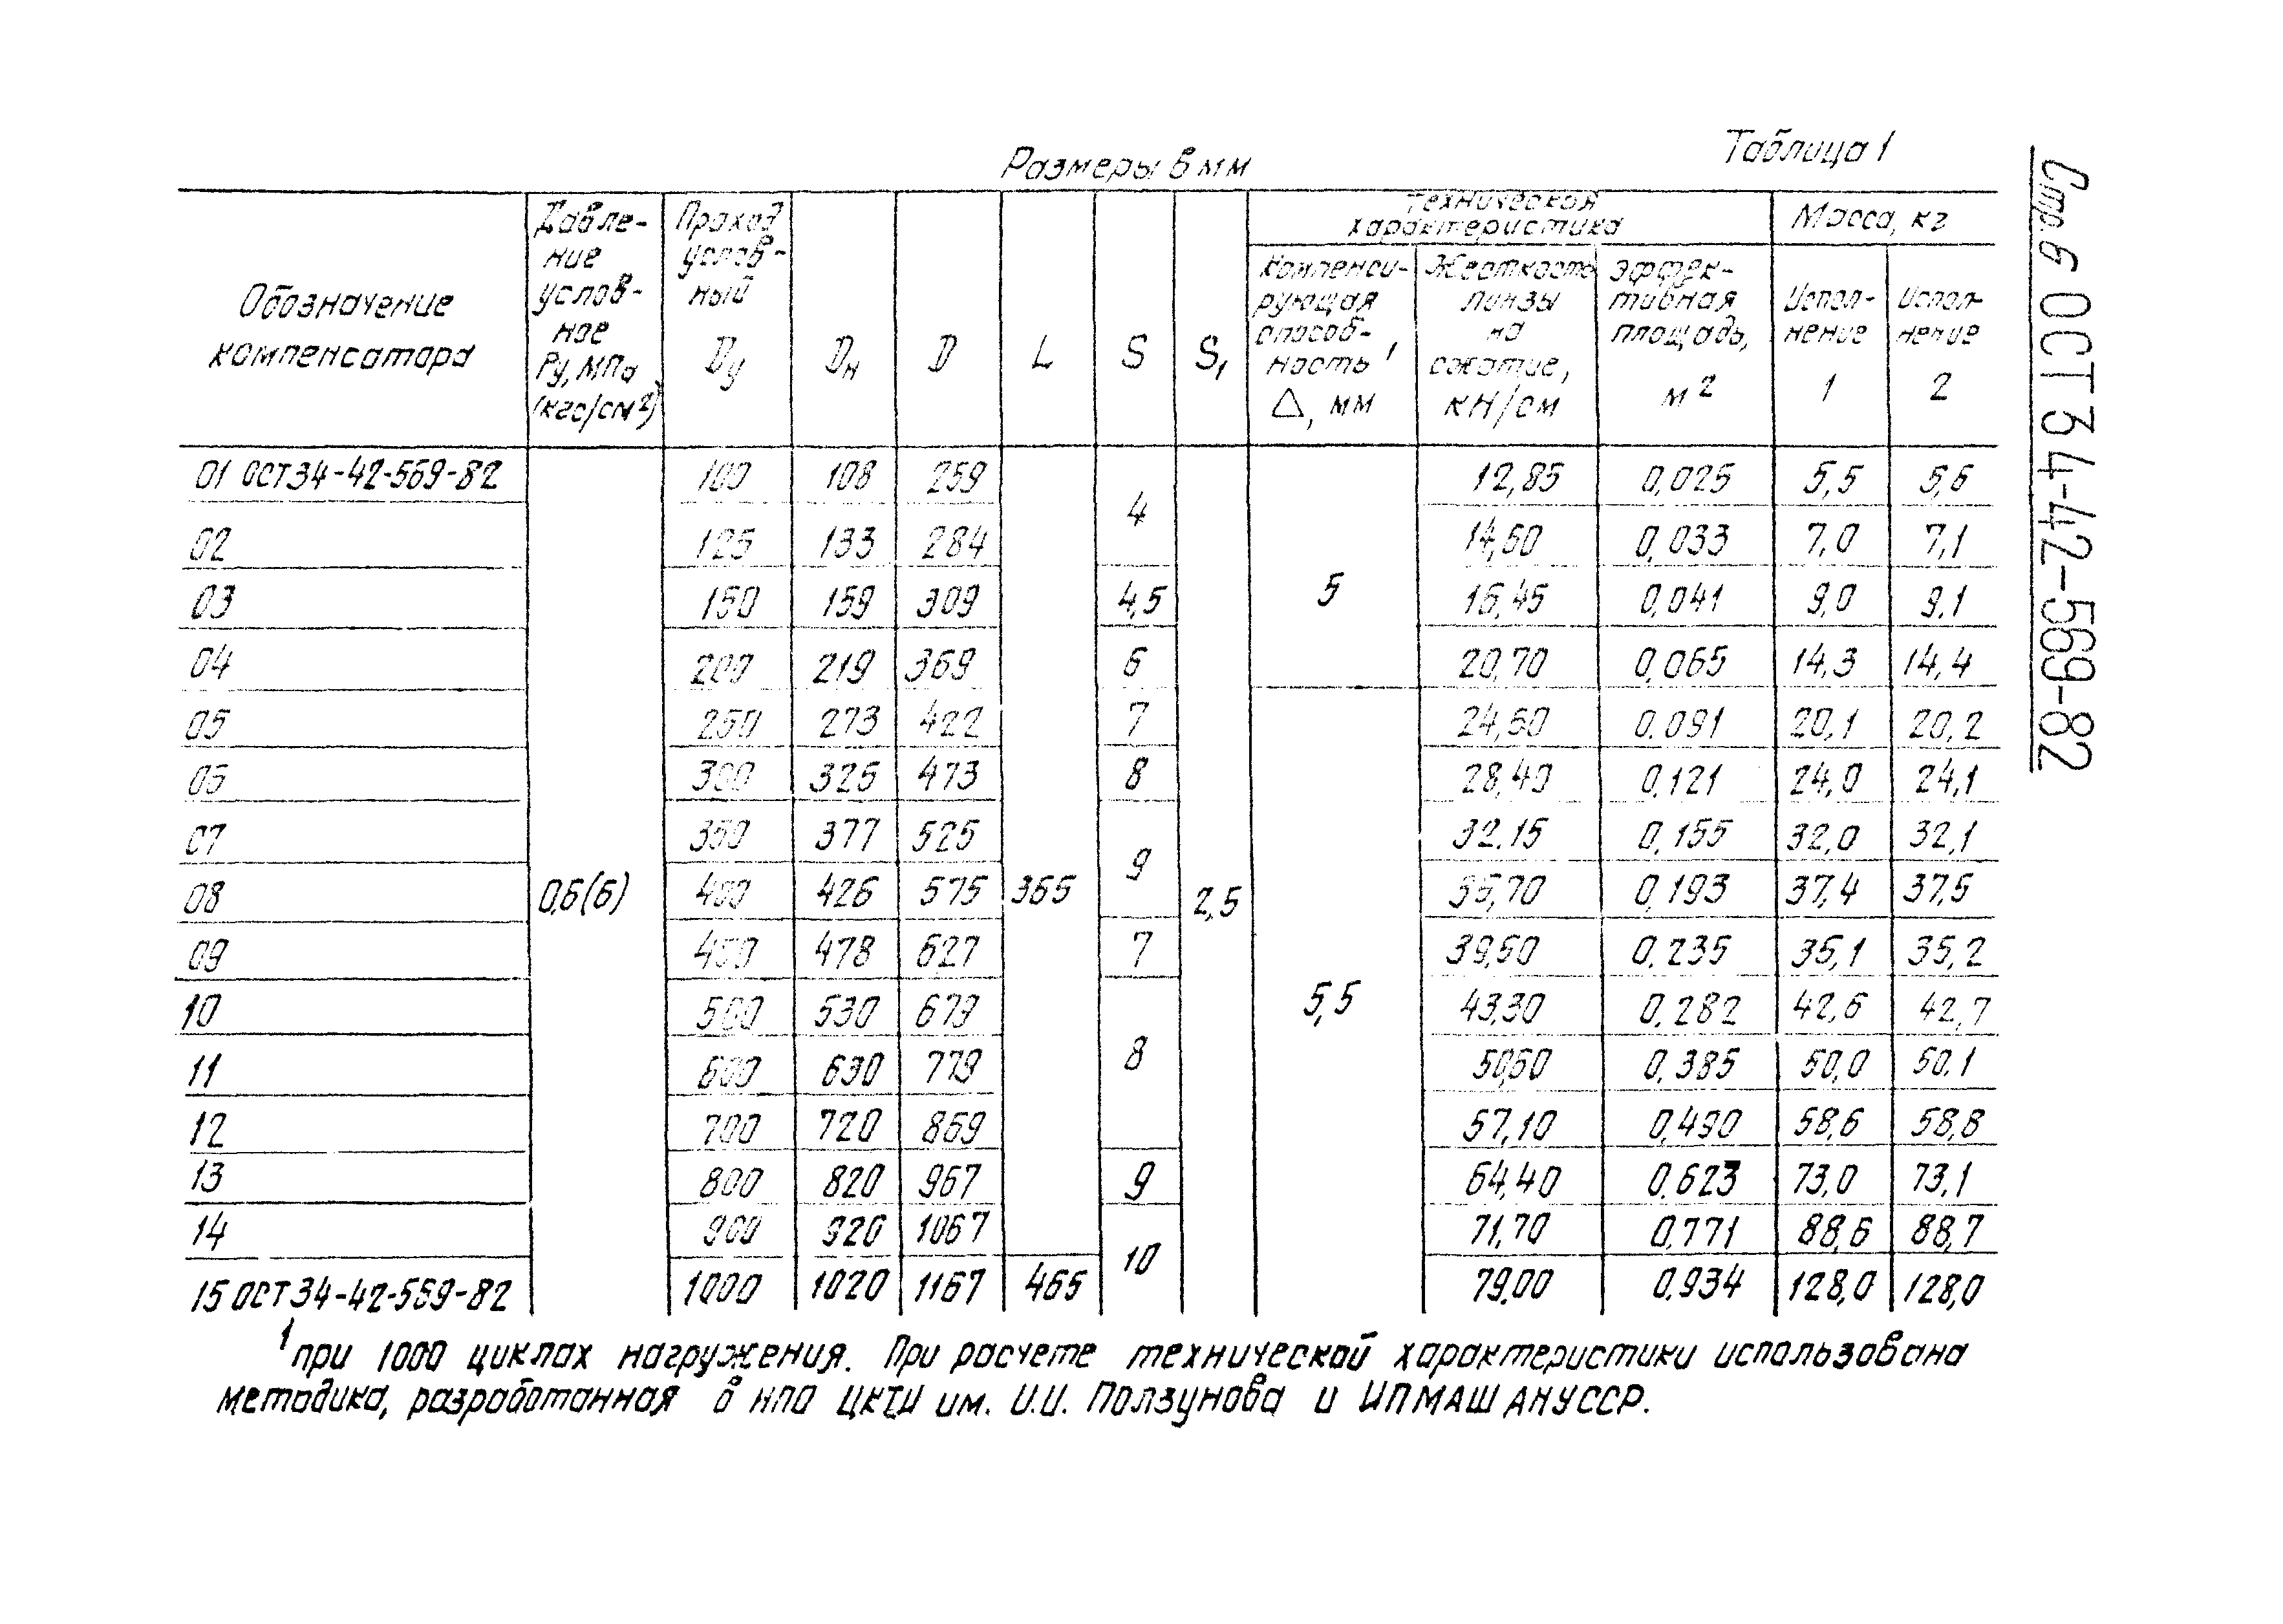 Стр. 6 ОСТ 34-42-569-82
Таблица 1
Размеры в мм
Обозначение компенсатора
Давле-
ние
услов-
ное
Ру, МПа
(кгс/см²)
Проход
услов-
ный
Dу
Dн
D
L
S
S₁
Техническая
характеристика
Компенси-
рующая
способ-
ность ¹,
△, мм
Жесткость
линзы
на
сжатие,
кН/см
Эффек-
тивная
площадь,
м²
Масса, кг
Испол-
нение
1
Испол-
нение
2
01 ОСТ 34-42-569-82 0,6(6) 100 108 259 365 4 2,5 5 12,85 0,025 5,5 5,6
02 125 133 284 14,60 0,033 7,0 7,1
03 150 159 309 4,5 16,45 0,041 9,0 9,1
04 200 219 369 6 20,70 0,065 14,3 14,4
05 250 273 422 7 5,5 24,60 0.091 20,1 20,2
06 300 325 473 8 28,40 0,121 24,0 24,1
07 350 377 525 9 32.15 0,155 32,0 32,1
08 400 426 575 35,70 0,193 37,4 37,5
09 450 478 627 7 39,50 0,235 35,1 35,2
10 500 530 679 8 43,30 0,282 42,6 42,7
11 600 630 779 50,60 0,385 50,0 50,1
12 700 720 869 57,10 0,490 58,6 58,8
13 800 820 967 9 64,40 0,623 73,0 73,1
14 900 920 1067 10 71,70 0,771 88,6 88,7
15 ОСТ 34-42-569-82 1000 1020 1167 465 79,00 0,934 128,0 128,0
¹ при 1000 циклах нагружения. При расчете технической характеристики использована
методика, разработанная в НПО ЦКТИ им. И.И. Ползунова и ИПМАШ АН УССР.